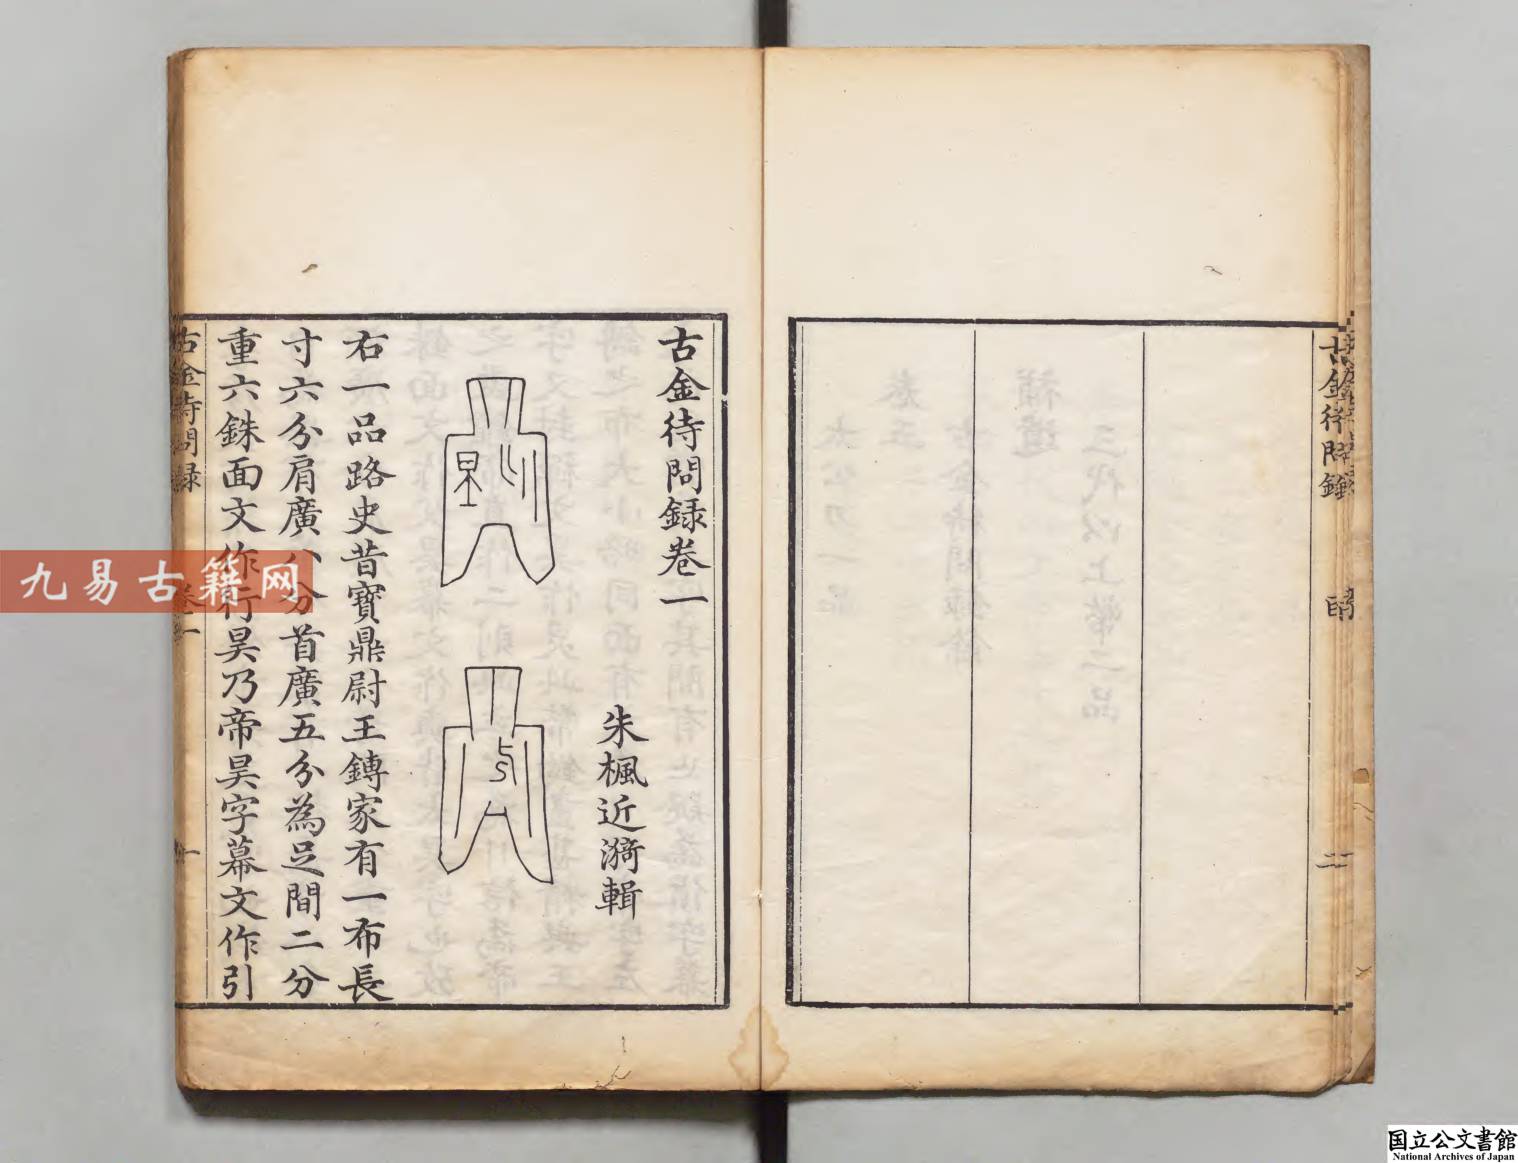 古金待問録
目
二
古金待問録卷一
朱楓近漪輯
右一品路史昔寶鼎尉王鏄家有一布長
寸六分肩廣八分首廣五分為足間二分
重六銖面文作行昊乃帝昊字幕文作引
古金待問録
卷一
一
九易古籍网
国立公文書館
National Archives of Japan